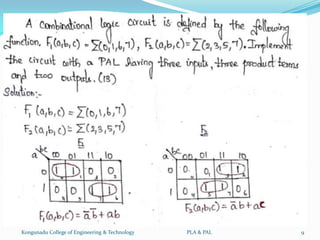 A Combinational logic circuit is defined by the following
function. F₁(a,b,c) = Σ(0,1,6,7), F₂(a,b,c) = Σ(2,3,5,7). Implement
the circuit with a PAL having three inputs, three product terms
and two outputs. (13)
Solution:-
F₁(a,b,c) = Σ(0,1,6,7)
F₂(a,b,c) = Σ(2,3,5,7)
F₁
F₂
a bc 00 01 11 10
0 1 1 0 0
1 0 0 1 1
a bc 00 01 11 10
0 0 0 1 1
1 0 1 1 0
F₁(a,b,c) = a̅ b̅ + ab
F₂(a,b,c) = a̅ b + ac
Kongunadu College of Engineering & Technology PLA & PAL 9